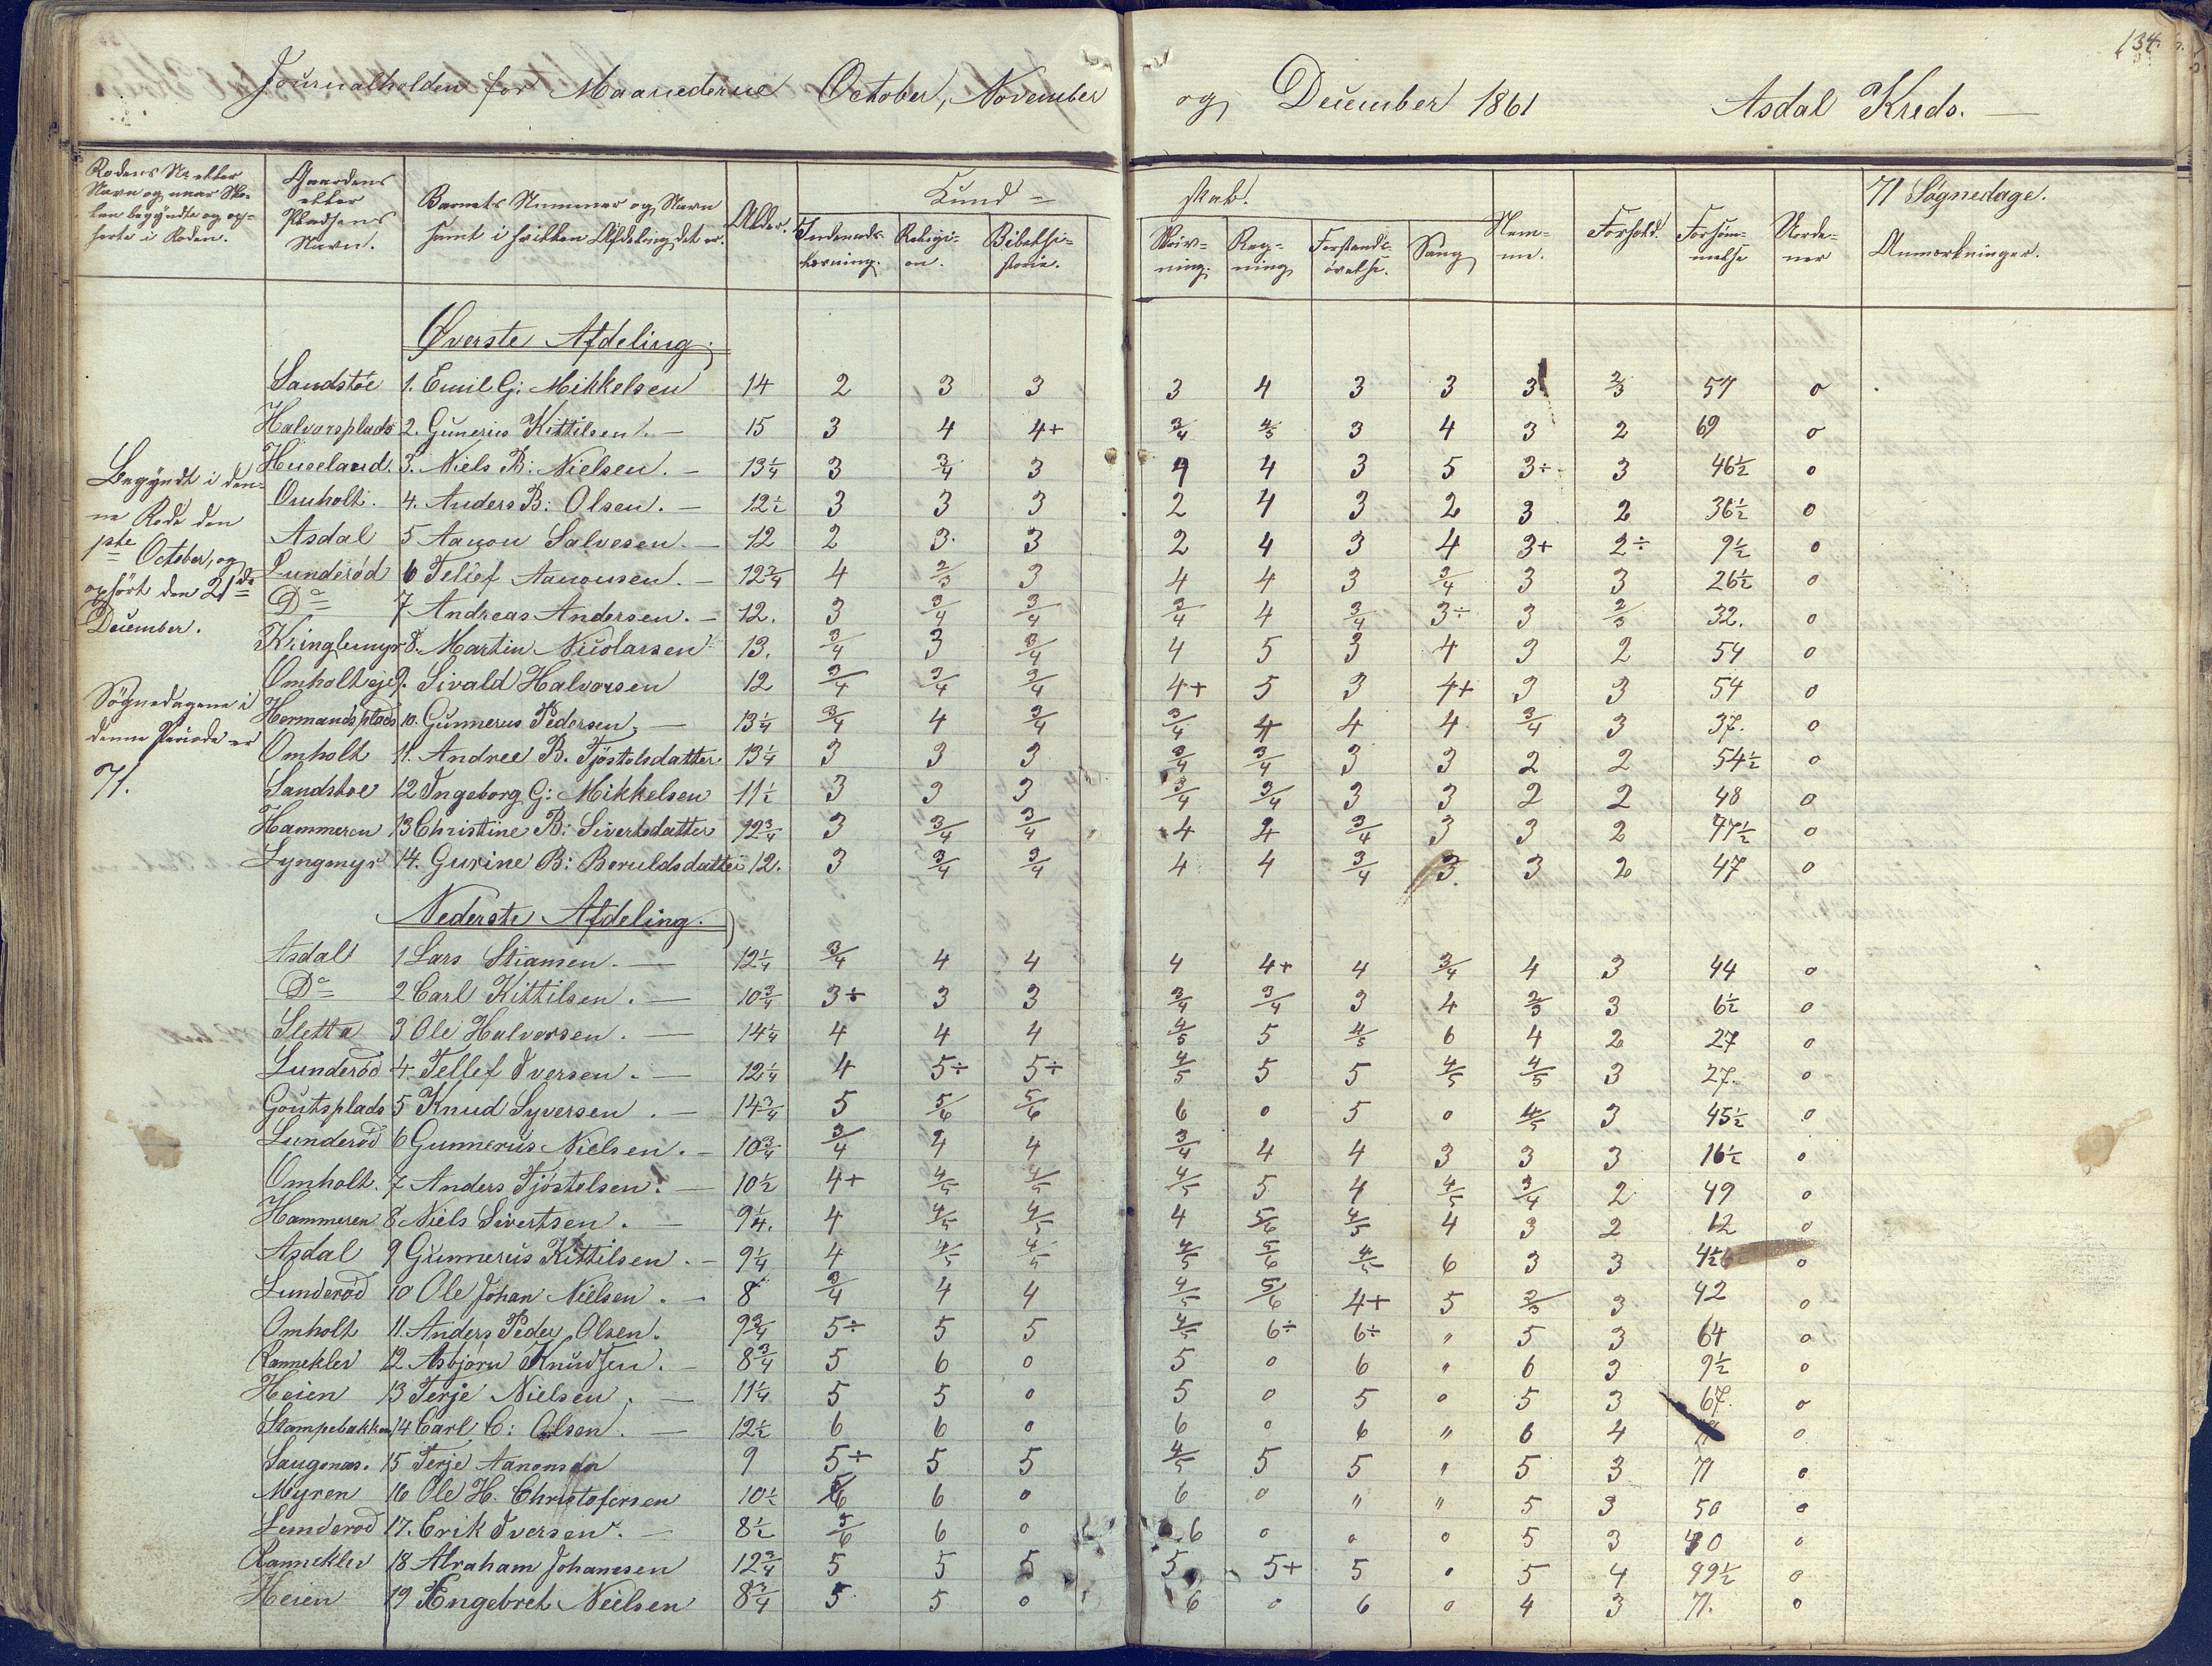 134.
Journalholden for Maanederne October, November og December 1861 Asdal Kreds.
Rodens Nr. eller Navn og naar Skolen begyndte og ophørte i Roden.
Gaardens eller Pladsens Navn.
Barnets Nummer og Navn samt i hvilken Afdeling det er.
Alder.
Kundskab.
Indenadslæsning.
Religion.
Bibelhistorie.
Skrivning.
Regning
Forstandsøvelse.
Sang
Nemme.
Forhold.
Forsømmelse
71 Søgnedage.
Anmærkninger.
Øverste Afdeling.
Sandstøe 1. Emil G: Mikkelsen 14 2 3 3 3 4 3 3 3 2/3 57 0
Halvorsplads 2. Gunerius Kittilsen. — 15 3 4 4+ 3/4 4/5 3 4 3 2 69 0
Huseland. 3. Niels B: Nielsen. — 13 1/4 3 3/4 3 4 4 3 5 3÷ 3 46 1/2 0
Omholt. 4. Anders B: Olsen. — 12 1/2 3 3 3 2 4 3 2 3 2 36 1/2 0
Asdal 5 Aanon Salvesen. — 12 2 3 3 2 4 3 4 3+ 2÷ 9 1/2 0
Lunderød 6 Telief Aanonsen. — 12 3/4 4 2/3 3 4 4 3 3/4 3 3 26 1/2 0
Do 7 Andreas Andersen. — 12. 3 3/4 3/4 3/4 4 3/4 3÷ 3 2/3 32. 0
Kringlemyr 8. Martin Nicolarsen 13. 3/4 3 3/4 4 5 3 4 3 2 54 0
Omholtseje 9. Sivald Halvorsen 12 3/4 3/4 3/4 4+ 5 3 4+ 3 3 54 0
Hermandsplads 10. Gunnerus Pedersen, — 13 1/4 3/4 4 3/4 3/4 4 4 4 3/4 3 37. 0
Omholt 11. Andree B. Tjøstolsdatter 13 1/4 3 3 3 3/4 3/4 3 3 2 2 54 1/2 0
Sandstoe 12 Ingeborg G: Mikkelsen 11 1/2 3 3 3 3/4 3/4 3 3 2 2 48 0
Hammeren 13 Christine B: Sivertsdatter 12 3/4 3 3/4 3/4 4 4 3/4 3 3 2 47 1/2 0
Lyngmyr 14. Gurine B: Beruldsdatter 12. 3 3/4 3/4 4 4 3/4 3. 3 2 47 0
Begyndt i denne Rode den 1ste October, og ophört den 21de December.
Sögnedagene i denne Periode er 71.
Nederste Afdeling.
Asdal 1 Lars Stiansen. — 12 1/4 3/4 4 4 4 4+ 4 3/4 4 3 44 0
Do 2 Carl Kittilsen. — 10 3/4 3÷ 3 3 3/4 3/4 3 4 2/3 3 6 1/2 0
Sletta 3 Ole Halvorsen. — 14 1/4 4 4 4 4/5 5 4/5 6 4 2 27 0
Lunderöd 4. Tellef Iversen. — 12 1/4 4 5÷ 5÷ 4/5 5 5 4/5 4/5 3 27. 0
Goutsplads 5 Knud Syversen. — 14 3/4 5 5/6 5/6 6 0 5 0 4/5 3 45 1/2 0
Lunderöd 6 Gunnerus Nielsen. — 10 3/4 3/4 4 4 3/4 4 4 3 3 3 16 1/2 0
Omholt. 7 Anders Tjöstelsen. — 10 1/2 4+ 4/5 4/5 4/5 5 4 4/5 3/4 2 49 0
Hammeren 8 Niels Sivertsen. — 9 1/4. 4 4/5 4/5 4 5/6 4/5 4 3 2 12 0
Asdal 9 Gunnerus Kittilsen. — 9 1/4 4 4/5 4/5 4/5 5/6 4/5 6 3 3 0
Lunderöd 10 Ole Johan Nielsen. — 8 3/4 4 4 4/5 5/6 4+ 5 2/3 3 42 0
Omholt 11. Anders Peder Olsen. 9 3/4 5÷ 5 5 4/5 6÷ 6÷ " 5 3 64 0
Rannekler 12 Asbjörn Knudsen. — 8 3/4 5 6 0 5 0 6 " 6 3 9 1/2 0
Heien 13 Terje Nielsen. — 11 1/4 5 5 0 5 0 5 0 5 3 67. 0
Stampebakken 14 Carl C: Olsen. — 12 1/2 6 6 0 6 0 6 " 6 4 0
Saugenæs. 15 Terje Aanonsen 9 5÷ 5 5 4/5 5 5 " 5 3 71 0
Myren 16 Ole H. Christofersen 10 1/2 5/6 6 0 6 0 " " 5 3 50 0
Lunderod 17. Erik Iversen. — 8 1/2 5/6 6 0 6 0 0 0 5 3 40 0
Rannekler 18 Abraham Johannesen 12 3/4 5 5 5 5 5+ 5 0 5 4 49 1/2 0
Heien 19 Engebret Nielsen 8 3/4 5 5 0 6 0 6 0 4 3 71. 0